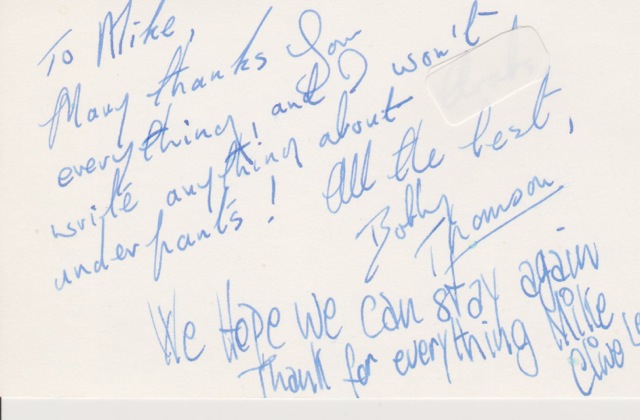 To Mike,
Many thanks for
everything, and I won't
write anything about
underpants! All the best,
Bobby
Thomson
We Hope we can stay again
Thank for everything Mike
Clive